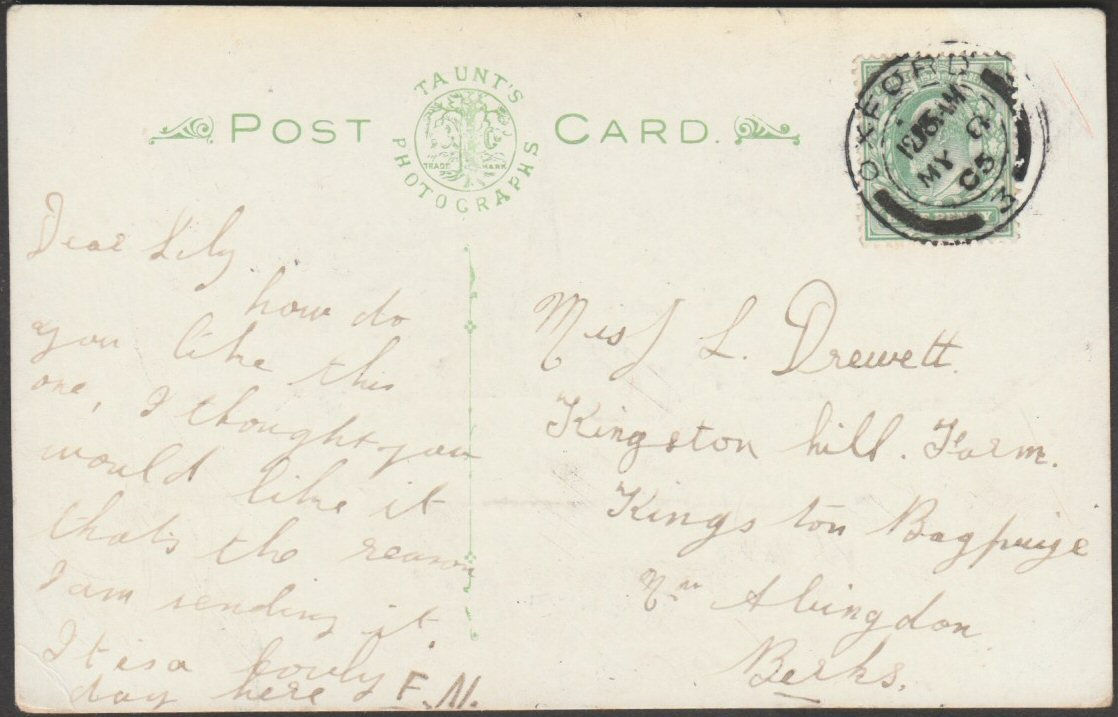 POST CARD.
TAUNT'S
PHOTOGRAPHS
TRADE MARK
OXFORD
12.15 AM
MY
05
3
PENNY
Dear Lily
how do
you like this
one, I thought you
would like it
thats the reason
I am sending it.
It is a lovly
day here F.N.
Miss L. Drewett.
Kingston hill. Farm.
Kingston Bagpuige
Nr Abingdon
Berks.